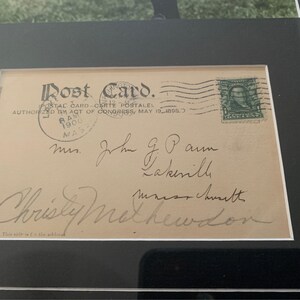 Post Card.
POSTAL CARD-CARTE POSTALE.
AUTHORIZED BY ACT OF CONGRESS, MAY 19, 1898.
1906
MASS
Mrs. John G Paun
Lakeville
Massachusetts
Christy Mathewson